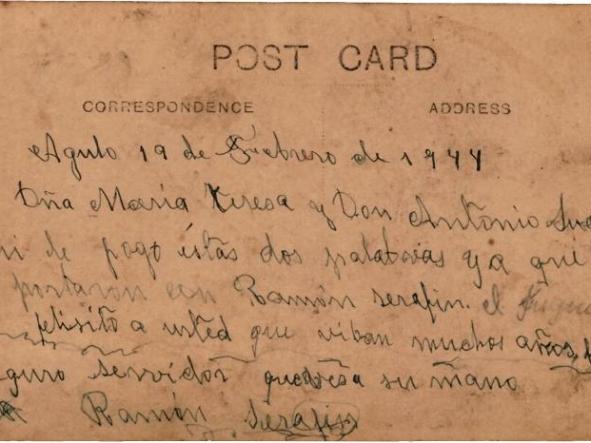 POST CARD
CORRESPONDENCE ADDRESS
Agulo 19 de Febrero de 1944
Dña Maria Teresa y Don Antonio
de pago éstas dos palabras ya que
portaron con Ramón serafin. el
felisito a usted que viban muchos años,
guro servidor quebesa su mano
Ramón Serafin